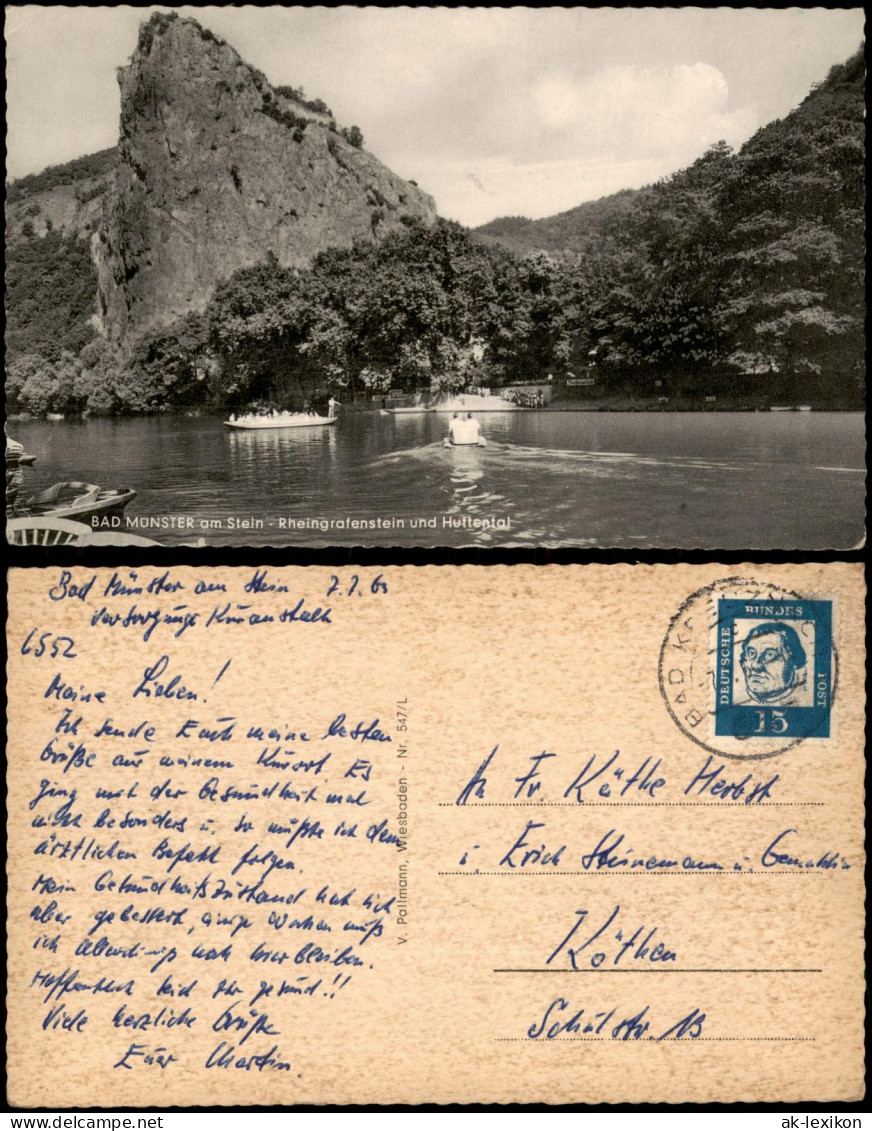 BAD MÜNSTER am Stein - Rheingrafenstein und Huttental
Bad Münster am Stein 7.7.63
Versorgungs Kuranstalt
6552
Meine Lieben!
Ich sende Euch meine besten
Grüße aus meinem Kurort. Es
ging mit der Gesundheit mal
nicht besonders u. so mußte ich dem
ärztlichen Befehl folgen.
Mein Gesundheitszustand hat sich
aber gebessert, einige Wochen muß
ich allerdings noch hier bleiben.
Hoffentlich seid Ihr gesund!!
Viele herzliche Grüße
Euer Martin.
V. Pallmann, Wiesbaden - Nr. 547/L
BAD
DEUTSCHE
BUNDES
POST
15
An Fr. Käthe Herbst
Erich Steinemann u. Gemahlin
Köthen
Schulstr. 13
ak-lexikon